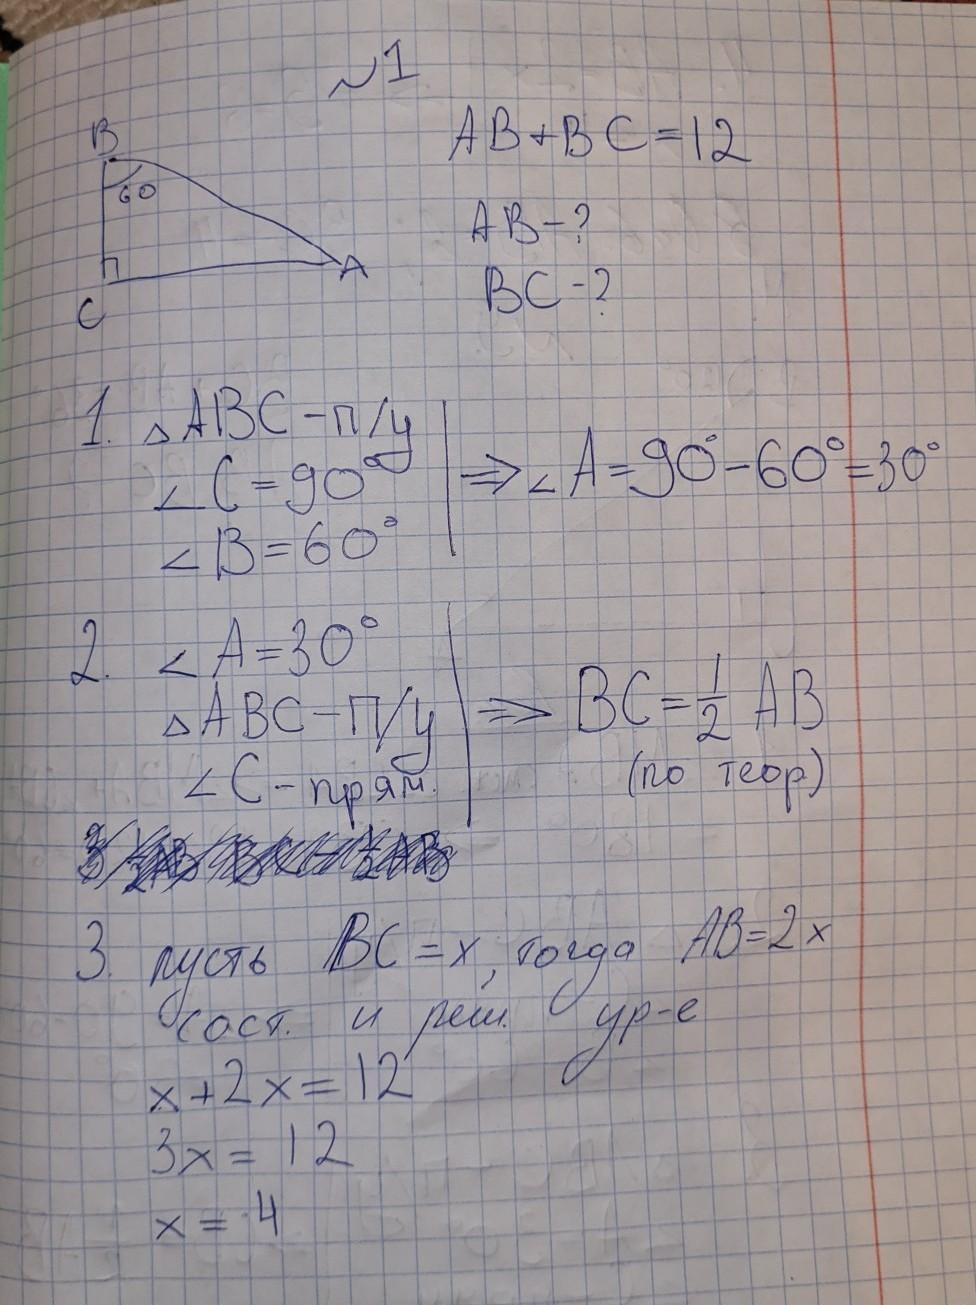 ~1
B
60
A
C
AB+BC=12
AB-?
BC-?
1. △ABC-п/у
∠C=90°
∠B=60°
⇒∠A=90°-60°=30°
2. ∠A=30°
△ABC-п/у
∠C-прям.
⇒ BC=1/2 AB
(по теор)
3. пусть BC=x, тогда AB=2x
сост. и реш. ур-е
x+2x=12
3x=12
x=4